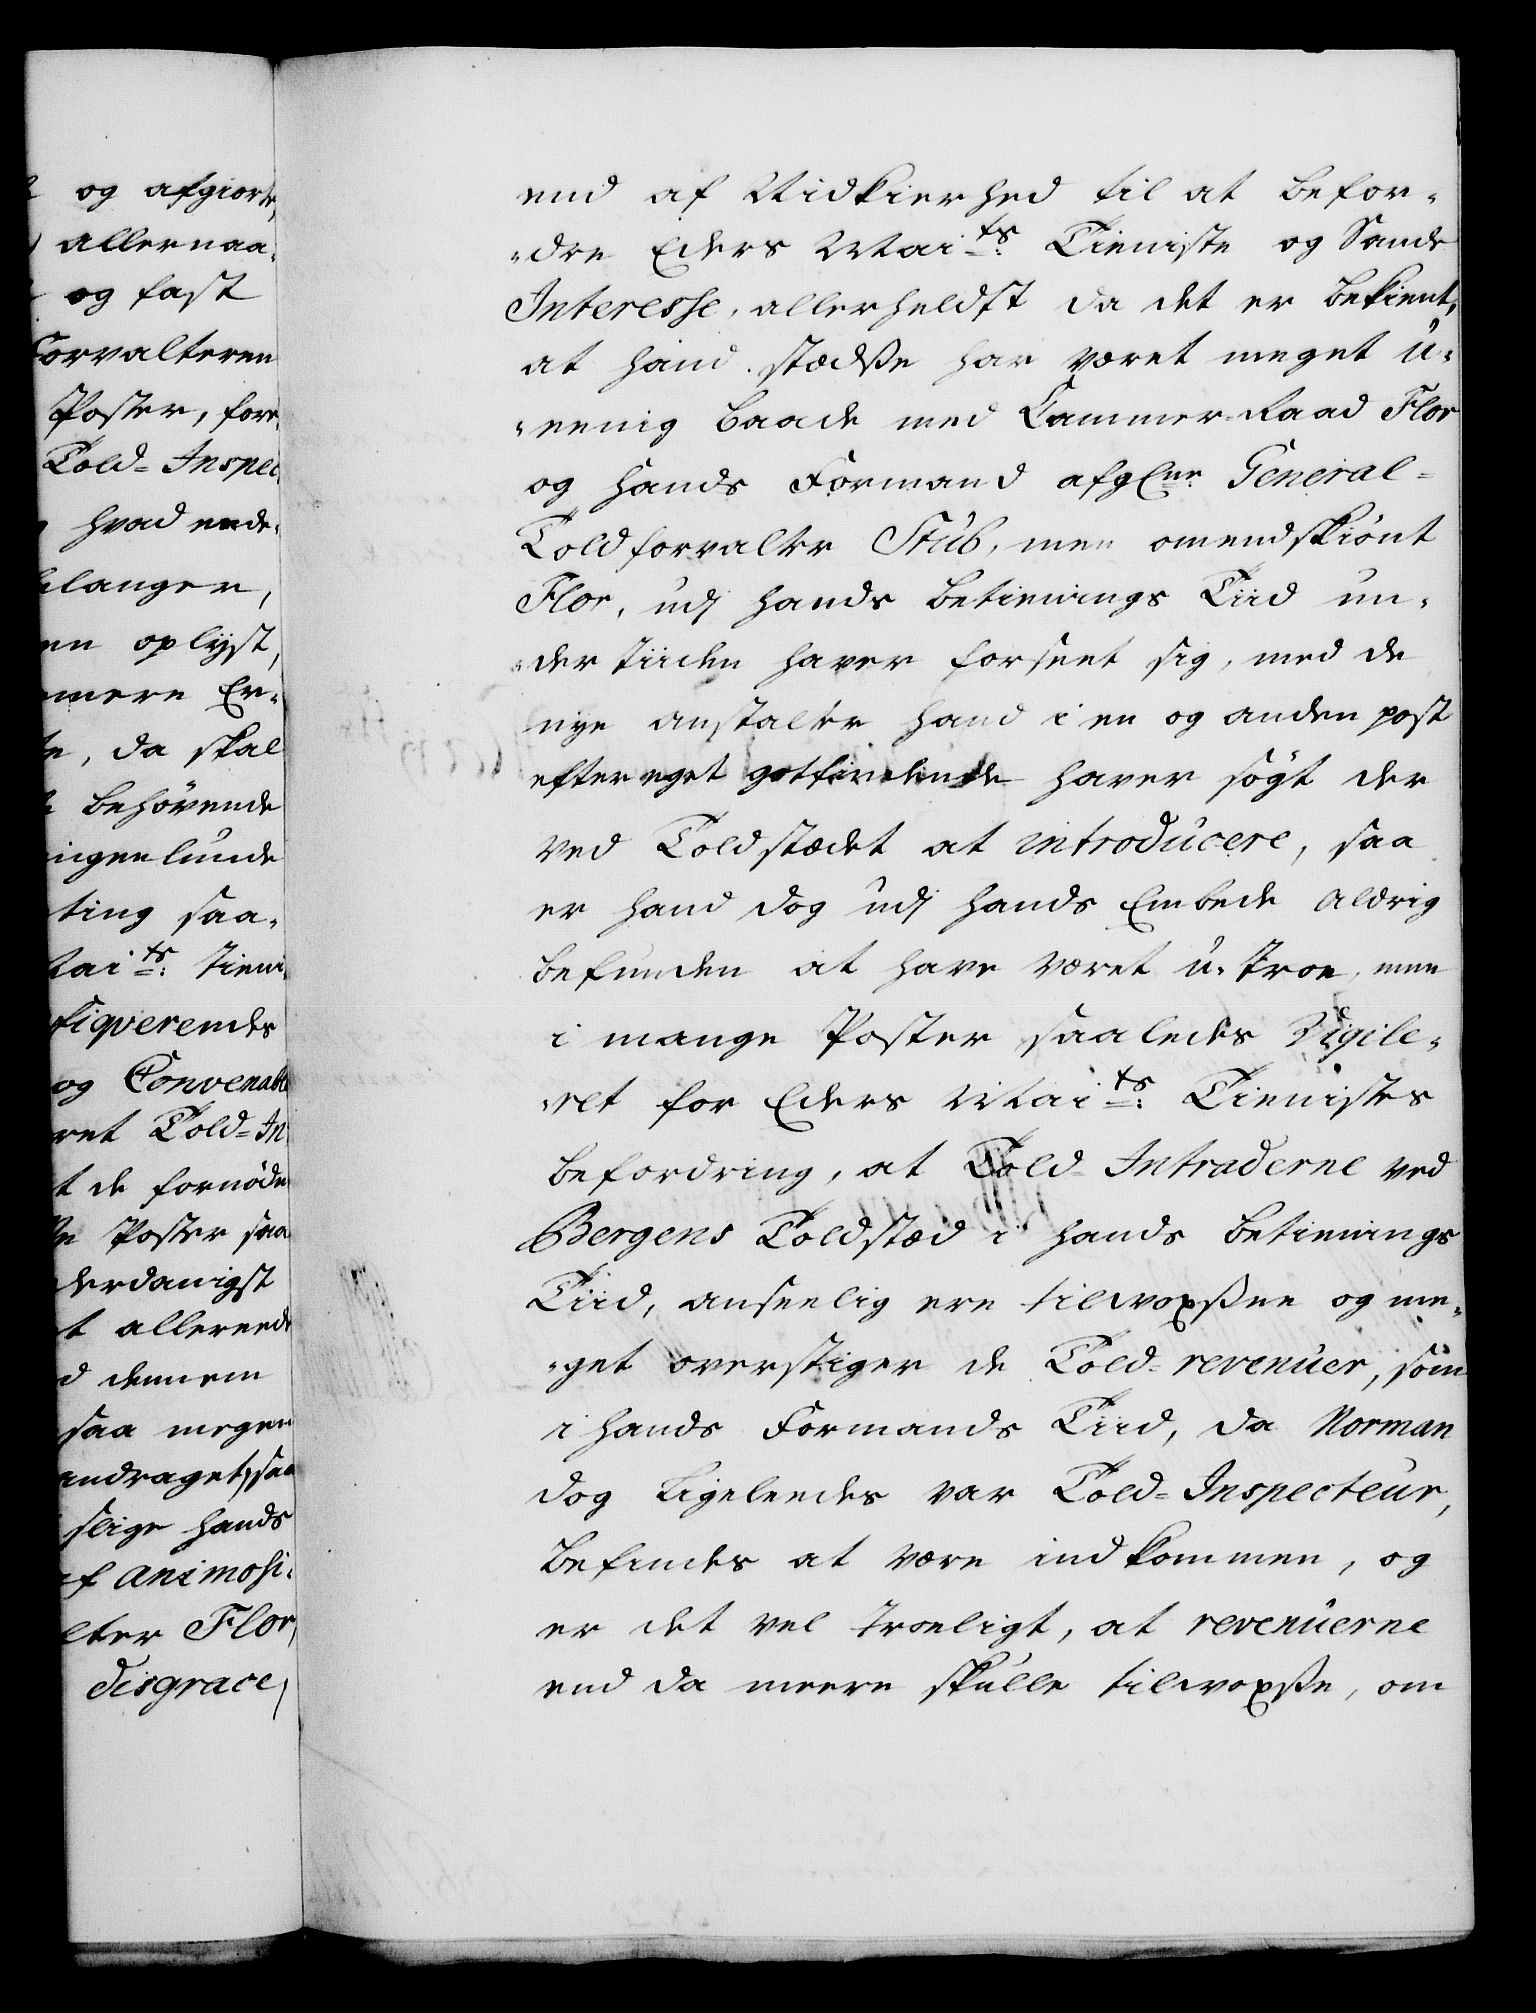 og afgiorte,
allernaa-
og fast
Forvalteren
Poster, fore-
Told-Inspec
hvad ende-
langer,
en oplyst,
mere Er-
te, da skal
behövende
ingenlunde
ting saa-
Maits: Tieni-
fiqverendes
og Convenable
ret Told-In
t de fornödne
Poster saa
derdanigst
t allereede
d dennem
saa megen
andraget, saa
slige hands
af animosi-
lter Flor,
disgrace,
end af Nidkierhed til at befor-
-dre Eders Maits: Tieniste og Sande
Interesse, allerheldst da det er bekient,
at hand stædse har været meget u-
-eenig baade med Cammer-Raad Flor
og hands Formand afgl:ne General-
Toldforvalter Stub, men omendskiönt
Flor, udj hands betienings Tiid un-
-der tiiden haver forseet sig, med de
nye anstalter hand i en og anden post
efter eget gotfindende haver sögt der
ved Toldstædet at introducere, saa
er hand dog udj hands Embede aldrig
befunden at have været u-troe, men
i mange Poster saaledes Vigile-
-ret for Eders Maits: Tienistes
befordring, at Told-Intraderne ved
Bergens Toldstæd i hands betienings
Tiid, anseelig ere tilvoxsne og me-
-get overstiger de Told-revenüer, som
i hands Formands Tiid, da Norman
dog ligeleedes var Told-Inspecteur,
befindes at være indkommen, og
er det vel troeligt, at revenüerne
end da meere skulle tilvoxse, om